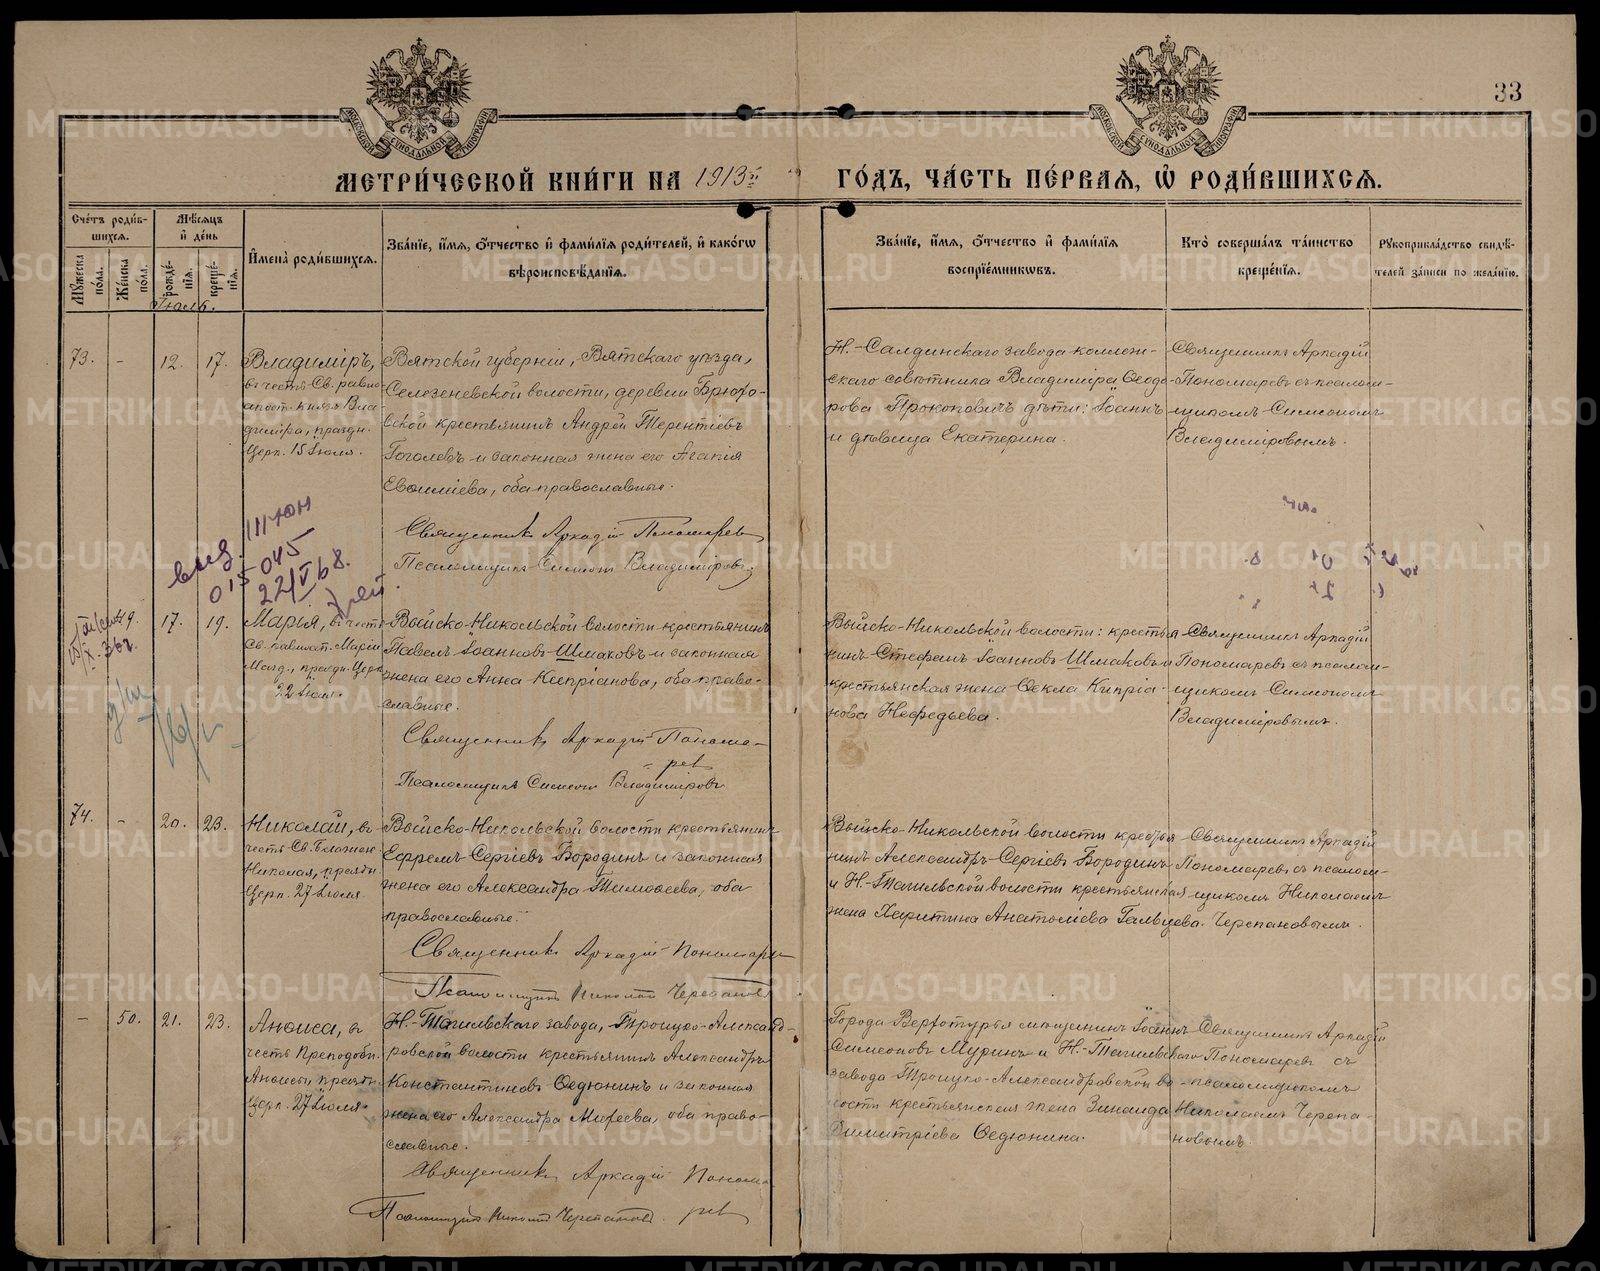 33
МОСКОВСКОЙ СѴНОДАЛЬНОЙ ТИПОГРАФІИ
МОСКОВСКОЙ СѴНОДАЛЬНОЙ ТИПОГРАФІИ
МЕТРИ́ЧЕСКОЙ КНИ́ГИ НА 1913й
ГО́ДЪ, ЧА́СТЬ ПЕ́РВАЯ, Ѡ РОДИ́ВШИХСЯ.
Сче́тъ роди́в-
шихся.
Мꙋжеска
по́ла.
Же́нска
по́ла.
Мѣ́сяцъ
и҆ де́нь
рожде́-
нїя.
креще́-
нїя.
И҆мена̀ роди́вшихся.
Зва́нїе, и҆́мя, о҆́тчество и҆ фами́лїя роди́телей, и҆ како́гѡ
вѣроисповѣ́данїя.
Зва́нїе, и҆́мя, о҆́тчество и҆ фами́лїя
воспрїе́мникѡвъ.
Кто̀ соверша́лъ та́инство
креще́нїя.
Рꙋкоприкла́дство свидѣ́-
телей за́писи по жела́нїю.
Іюль.
73.
-
12.
17.
Владиміръ,
въ честь Св. равно-
апост. князя Вла-
диміра, праздн.
Церк. 15 Іюля.
Вятской губерніи, Вятскаго уѣзда,
Селезеневской волости, деревни Брюхо-
вской крестьянинъ Андрей Терентіевъ
Гоголевъ и законная жена его Агапія
Евѳиміева, оба православные.
Священникъ Аркадій Пономаревъ
Псаломщикъ Симеонъ Владиміровъ
Н.-Салдинскаго завода коллеж-
скаго совѣтника Владиміра Ѳеодо-
рова Прокоповичъ дѣти: Іоаннъ
и дѣвица Екатерина.
Священникъ Аркадій
Пономаревъ съ псалом-
щикомъ Симеономъ
Владиміровымъ.
015045
22/V 68.
49.
17.
19.
Марія, въ честь
Св. равноап. Маріи
Магд., праздн. Церк.
22 Іюля.
Выйско-Никольской волости крестьянинъ
Павелъ Іоанновъ Шмаковъ и законная
жена его Анна Кипріанова, оба право-
славные.
Священникъ Аркадій Понома-
ревъ
Псаломщикъ Симеонъ Владиміровъ
Выйско-Никольской волости: крестья-
нинъ Стефанъ Іоанновъ Шмаковъ и
крестьянская жена Ѳекла Кипріа-
нова Нефедьева.
Священникъ Аркадій
Пономаревъ съ псалом-
щикомъ Симеономъ
Владиміровымъ.
74.
-
20.
23.
Николай, въ
честь Св. Блажен.
Николая, праздн.
Церк. 27 Іюля
Выйско-Никольской волости крестьянинъ
Ефремъ Сергіевъ Бородинъ и законная
жена его Александра Тимоѳеева, оба
православные.
Священникъ Аркадій Пономаревъ
Псаломщикъ Николай Черепановъ
Выйско-Никольской волости крестья-
нинъ Александръ Сергіевъ Бородинъ
и Н.-Тагильской волости крестьянская
жена Харитина Анатоліева Гальцева.
Священникъ Аркадій
Пономаревъ съ псалом-
щикомъ Николаемъ
Черепановымъ.
-
50.
21.
23.
Анѳиса, въ
честь Преподобн.
Анѳисы, праздн.
Церк. 27 Іюля.
Н.-Тагильскаго завода, Троицко-Александ-
ровской волости крестьянинъ Александръ
Константиновъ Ѳедюнинъ и законная
жена его Александра Михеева, оба право-
славные.
Священникъ Аркадій Понома-
ревъ
Псаломщикъ Николай Черепановъ.
Города Верхотурья мѣщанинъ Іоаннъ
Симеоновъ Муринъ и Н.-Тагильскаго
завода Троицко-Александровской во-
лости крестьянская жена Зинаида
Димитріева Ѳедюнина.
Священникъ Аркадій
Пономаревъ съ
псаломщикомъ
Николаемъ Черепа-
новымъ.
METRIKI.GASO-URAL.RU